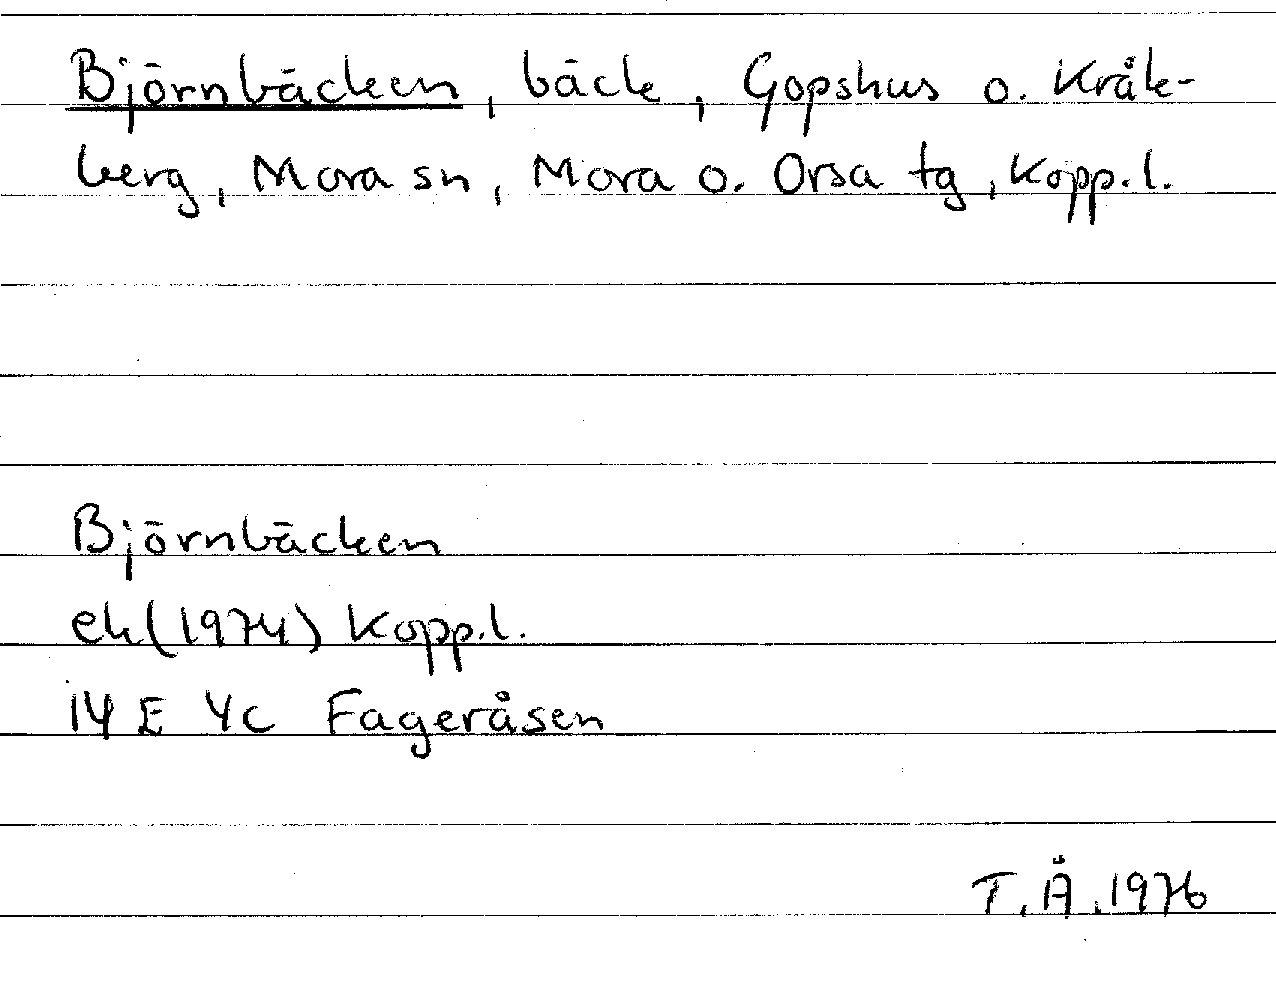 Björnbäcken, bäck, Gopshus o. Kråk-
berg, Mora sn, Mora o. Orsa tg, Kopp.l.
Björnbäcken
ek (1974) Kopp.l.
14 E 4c Fageråsen
T.Å.1976